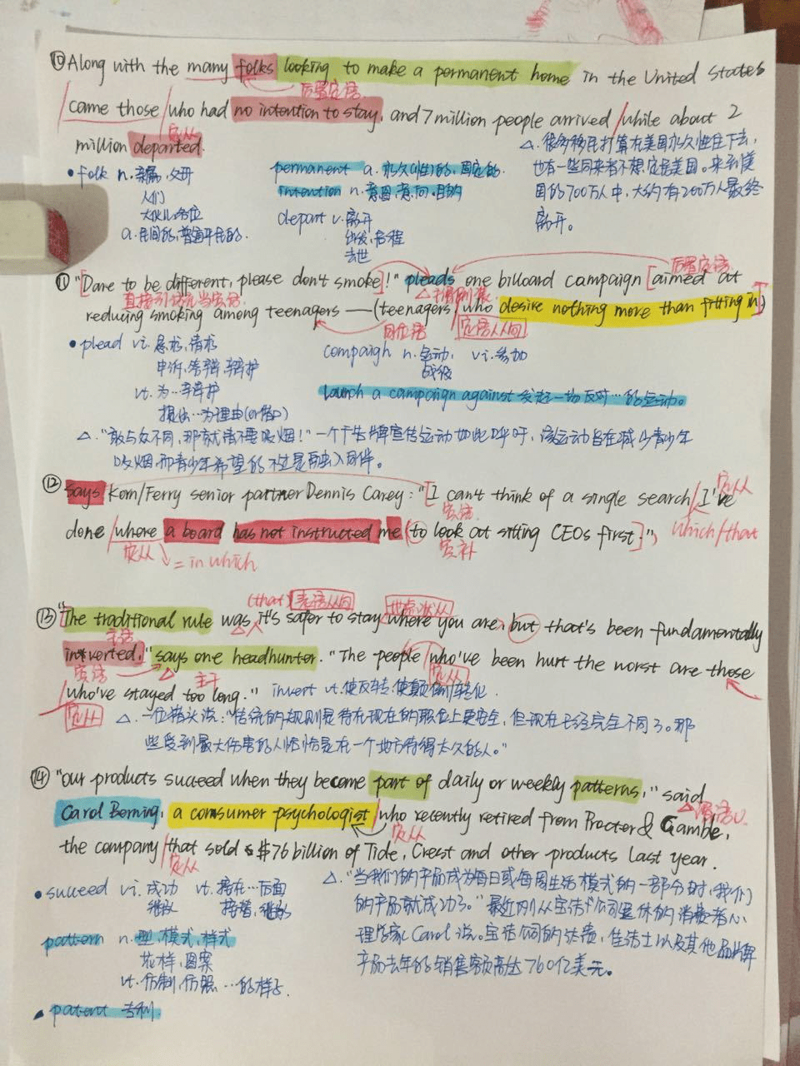 ⑩Along with the many folks looking to make a permanent home in the United States
后置定语
came those who had no intention to stay, and 7 million people arrived while about 2
定从
million departed.
△. 很多移民打算在美国永久性住下去,
也有一些同来者不想定居美国。来到美
国的700万人中,大约有200万人最终
离开。
•folk n. 亲属,父母
人们
a. 民间的,普通平民的.
permanent a. 永久(性)的,固定的.
intention n. 意图,意向,目的
depart v. 离开
出发,启程
去世
⑪"Dare to be different, please don't smoke!" pleads one billoard campaign aimed at
后置定语
直接引语充当宾语
reducing smoking among teenagers —(teenagers who desire nothing more than fitting in)
同位语 定语从句
•plead vi. 恳求,请求
申诉,答辩,辩护
vt. 为…辩护
提出…为理由(or借口)
campaign n. 运动, vi. 参加
战役
launch a campaign against 发起一场反对…的运动。
△."敢与众不同,那就请不要吸烟!"一个广告牌宣传运动如此呼吁,该运动旨在减少青少年
吸烟,而青少年希望的不过是融入同伴。
⑫says Korn/Ferry senior partner Dennis Carey: "I can't think of a single search I've
定从
宾语
done where a board has not instructed me (to look at sitting CEOs first]",
which/that
定从 =in which 宾补
⑬"The traditional rule was it's safer to stay where you are, but that's been fundamentally
(that) 表语从句 地点状从
主语
inverted," says one headhunter. "The people who've been hurt the worst are those
宾语 主干 定从
who've stayed too long." invert vt. 使反转,使颠倒,转化.
定从
△.一位猎头说:"传统的规则是待在现在的职位上更安全,但现在已经完全不同了。那
些受到最大伤害的人恰恰是在一个地方待得太久的人。"
⑭"our products succeed when they become part of daily or weekly patterns," said
△谓语v.
Carol Berning, a comsumer psychologist who recently retired from Procter & Gamble,
定从
the company that sold $76 billion of Tide, Crest and other products last year.
定从
•succeed vi. 成功 vt. 接在…后面
继承 接替,继承
pattern n. 型,模式,样式
花样,图案
vt. 仿制,仿照…的样子.
patent 专利
△."当我们的产品成为每日或每周生活模式的一部分时,我们
的产品就成功了。"最近刚从宝洁公司退休的消费者心
理学家Carol说。宝洁公司的汰渍,佳洁士以及其他品牌
产品去年的销售额高达760亿美元。